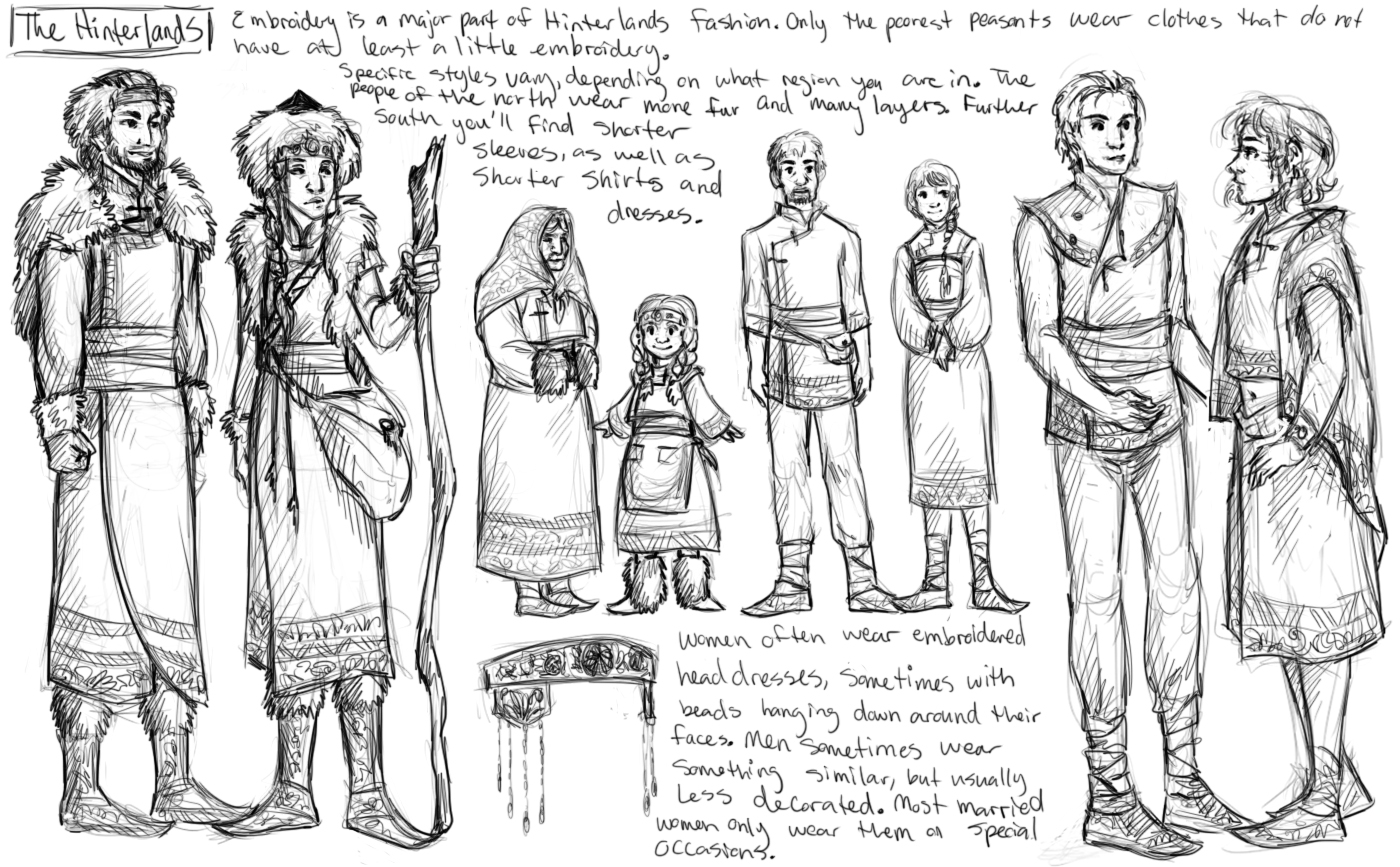 The Hinterlands
Embroidery is a major part of Hinterlands fashion. Only the poorest peasants wear clothes that do not
have at least a little embroidery.
Specific styles vary, depending on what region you are in. The
people of the north wear more fur and many layers. Further
South you'll find shorter
sleeves, as well as
shorter shirts and
dresses.
women often wear embroidered
headdresses, sometimes with
beads hanging down around their
faces. Men sometimes wear
something similar, but usually
less decorated. Most married
women only wear them on special
occasions.